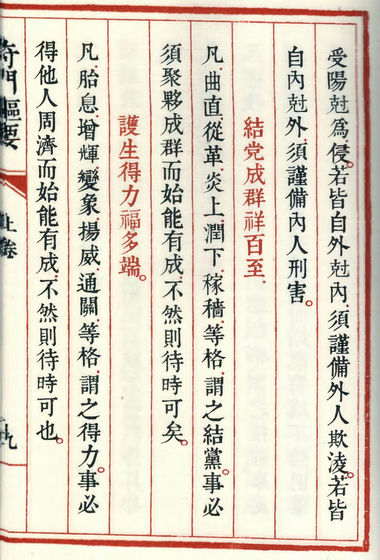 受陽尅爲侵。若皆自外尅內、須謹備外人欺淩。若皆
自內尅外、須謹備內人刑害。
結党成群祥百至、
凡曲直、從革炎上潤下、稼穡等格、謂之結黨、事必
須聚夥成群而始能有成、不然則待時可矣。
護生得力福多端。
凡胎息、增輝變象、揚威、通關、等格、謂之得力。事必
得他人周濟而始能有成、不然則待時可也。
奇門樞要
上卷
九